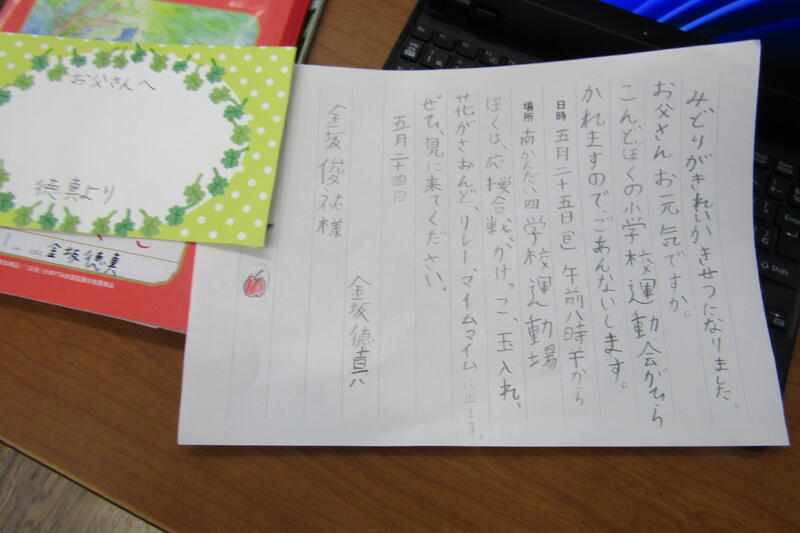 みどりがきれいかきせつになりました。
お父さん お元気ですか。
こんどぼくの小学校運動会がひら
かれますので、ごあんないします。
日時 五月二十五日(日) 午前八時半から
場所 南かんだい四学校運動場
ぼくは、応援合戦、がけっこ、玉入れ、
花がさおんど、リレー、マイムマイムに出ます。
ぜひ、見に来てください。
五月二十四日
金坂徳真
金坂俊祐様
お父さんへ
徳真より
金坂徳真
Shift